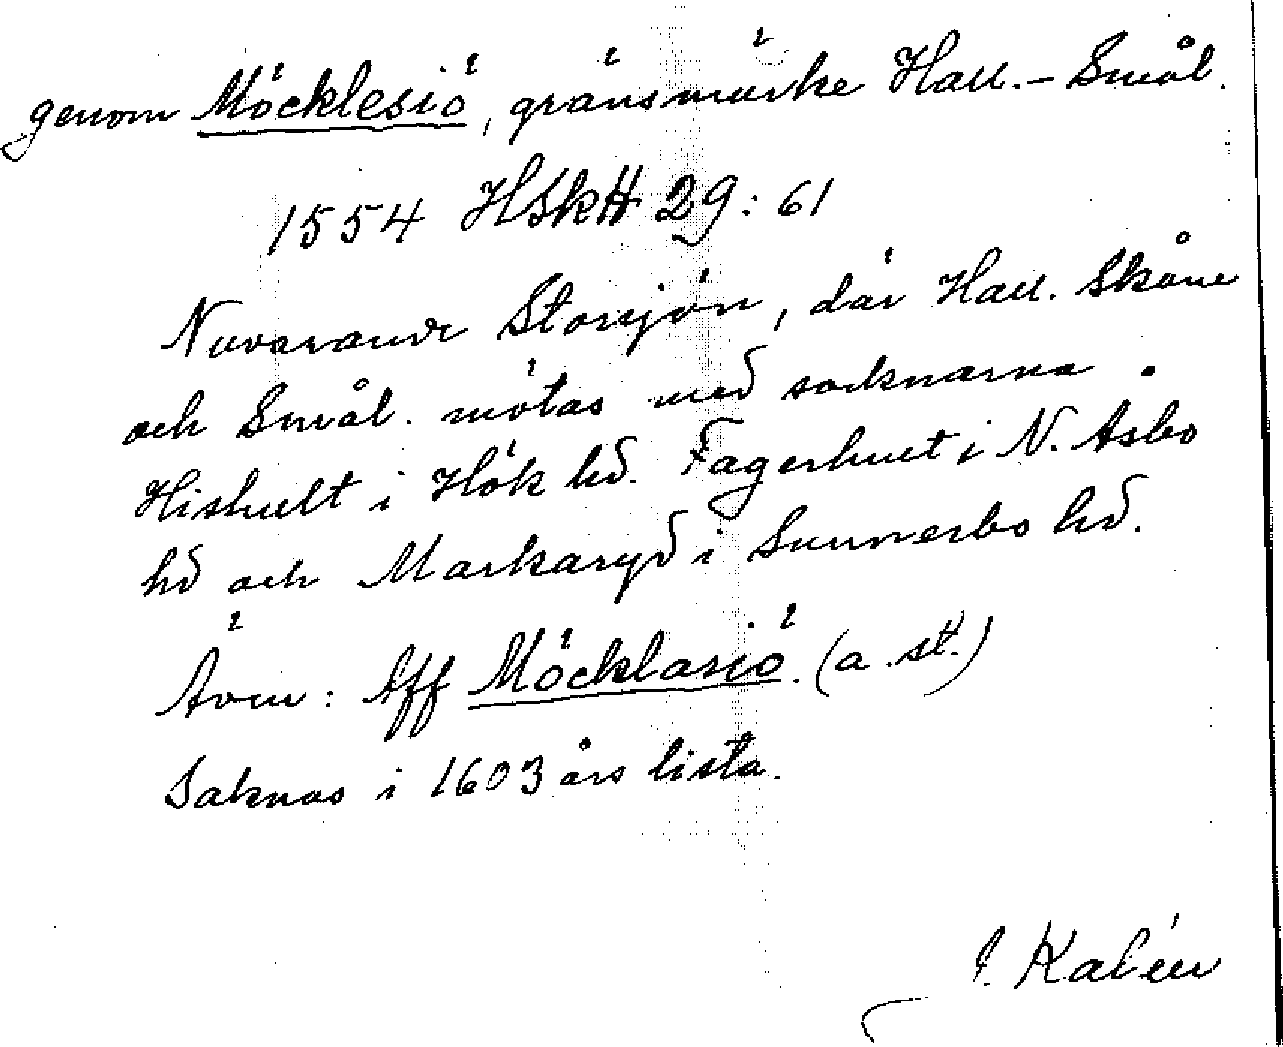 genom Möcklesiö, gränsmärke Hall. – Smål.
1554 HSkH 29:61
Nuvarande Storsjön, där Hall. Skåne
och Smål. mötas med socknarna
Hishult i Hök hd. Fagerhult i N. Åsbo
hd och Markaryd i Sunnerbo hd.
Även: Aff Möcklasiö. (a. st.)
Saknas i 1603 års lista.
J. Kalén